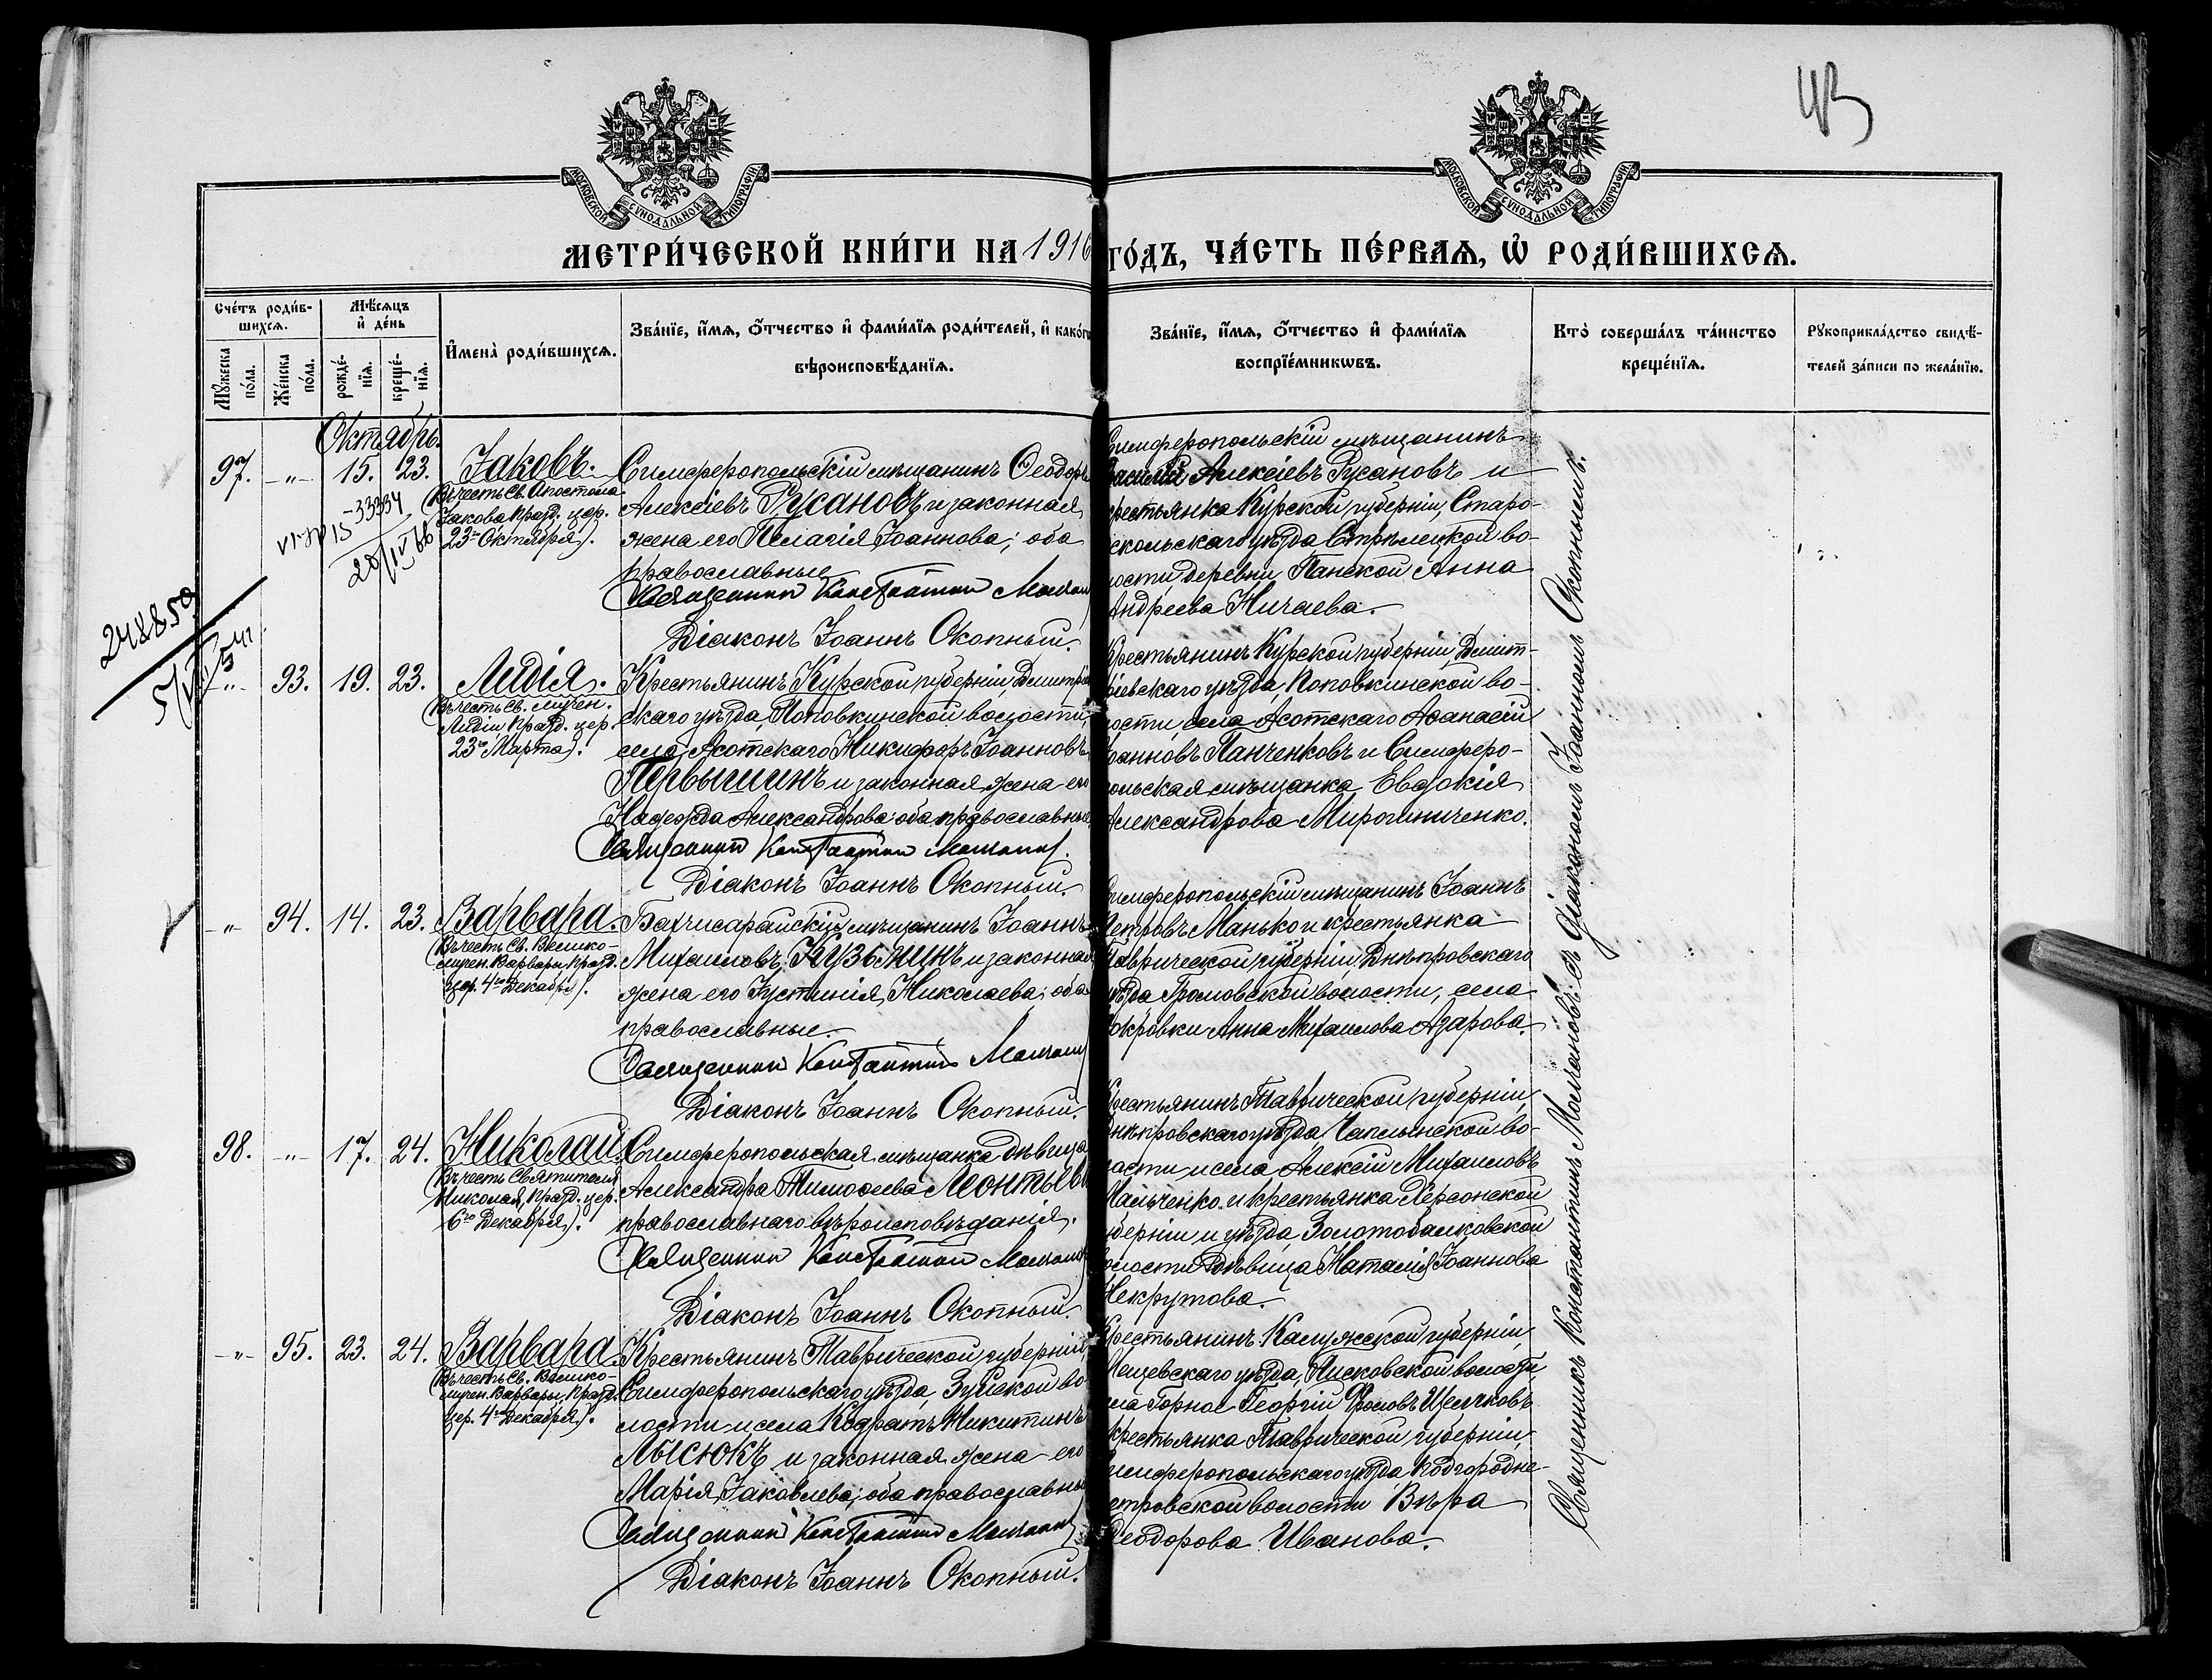 43
МОСКОВСКОЙ СѴНОДАЛЬНОЙ ТИПОГРАФІИ
МОСКОВСКОЙ СѴНОДАЛЬНОЙ ТИПОГРАФІИ
МЕТРИ́ЧЕСКОЙ КНИ́ГИ НА 1916 ГО́ДЪ, ЧА́СТЬ ПЕ́РВАѦ, Ѡ҆ РОДИ́ВШИХСѦ.
Сче́тъ роди́в-
шихсѧ.
Мꙋ́жеска
по́ла.
Же́нска
по́ла.
Мѣ́сѧцъ
и҆ де́нь
рожде́-
нїѧ.
креще́-
нїѧ.
И҆мена̀ роди́вшихсѧ.
Зва́нїе, и҆́мѧ, ѻ҆́тчество и҆ фами́лїѧ роди́телей, и҆ како́гѡ
вѣроисповѣ́данїѧ.
Зва́нїе, и҆́мѧ, ѻ҆́тчество и҆ фами́лїѧ
воспрїе́мникѡвъ.
Кто̀ соверша́лъ та́инство
креще́нїѧ.
Рꙋкоприкла́дство свидѣ́-
телей за́писи по жела́нїю.
Октябрь.
97. -"- 15. 23. Іаковъ.
(Въ честь Св. Апостола
Іакова празд. цер.
23го Октября).
Симферопольскій мѣщанинъ Ѳеодоръ
Алексіевъ Русановъ и законная
жена его Пелагія Іоаннова; оба
православные
Священникъ Константинъ
Діаконъ Іоаннъ Окопный.
Симферопольскій мѣщанинъ
Василій Алексіевъ Русановъ и
крестьянка Курской губерніи, Старо-
скольскаго уѣзда, Стрѣлецкой во-
лости, деревни Панской Анна
Андреева Ничаева.
33334
20/IV 66
248850
-"- 93. 19. 23. Лидія.
(Въ честь Св. мучен.
Лидіи празд. цер.
23го Марта).
Крестьянинъ Курской губерніи, Дмитріев
скаго уѣзда, Поповкинской волости,
села Асотскаго Никифоръ Іоанновъ
Первышинъ и законная жена его
Надежда Александрова; оба православные.
Священникъ Константинъ
Діаконъ Іоаннъ Окопный.
Крестьянинъ Курской губерніи, Дмит-
ріевскаго уѣзда, Поповкинской во-
лости, села Асотскаго Аѳанасій
Іоанновъ Панченковъ и Симферо-
польская мѣщанка Евдокія
Александрова Мирошниченко.
-"- 94. 14. 23. Варвара.
(Въ честь Св. Велико-
мучен. Варвары, празд.
цер. 4го Декабря).
Бахчисарайскій мѣщанинъ Іоаннъ
Михаиловъ Кузьминъ и законная
жена его Іустинія Николаева; оба
православные.
Священникъ Константинъ
Діаконъ Іоаннъ Окопный.
Симферопольскій мѣщанинъ Іоаннъ
Петровъ Манько и крестьянка
Таврической губерніи, Днѣпровскаго
уѣзда Громовской волости, села
Покровки Анна Михаилова Азарова.
98. -"- 17. 24. Николай.
(Въ честь Святителя
Николая, празд. цер.
6го Декабря).
Симферопольская мѣщанка дѣвица
Александра Тимоѳеева Леонтьева
православнаго вѣроисповѣданія.
Священникъ Константинъ
Діаконъ Іоаннъ Окопный.
Крестьянинъ Таврической губерніи,
Днѣпровскаго уѣзда, Чаплынской во-
лости и села Алексій Михаиловъ
Мальченко и крестьянка Херсонской
губерніи и уѣзда, Золотобалковской
волости дѣвица Наталія Іоаннова
Некрутова.
-"- 95. 23. 24. Варвара.
(Въ честь Св. Велико-
мучен. Варвары, празд.
цер. 4го Декабря).
Крестьянинъ Таврической губерніи,
Симферопольскаго уѣзда, Зуйской во
лости и села Кодратъ Никитинъ
Лысюкъ и законная жена его
Марія Іаковлева; оба православные
Священникъ Константинъ
Діаконъ Іоаннъ Окопный.
Крестьянинъ Калужской губерніи,
Мещевскаго уѣзда, волости,
села Горное Георгій Фроловъ Щелчковъ
крестьянка Таврической губерніи,
Симферопольскаго уѣзда Подгородне-
Петровской волости Вѣра
Ѳеодорова Иванова.
Священникъ Константинъ Молчановъ съ діакономъ Іоанномъ Окопнымъ.